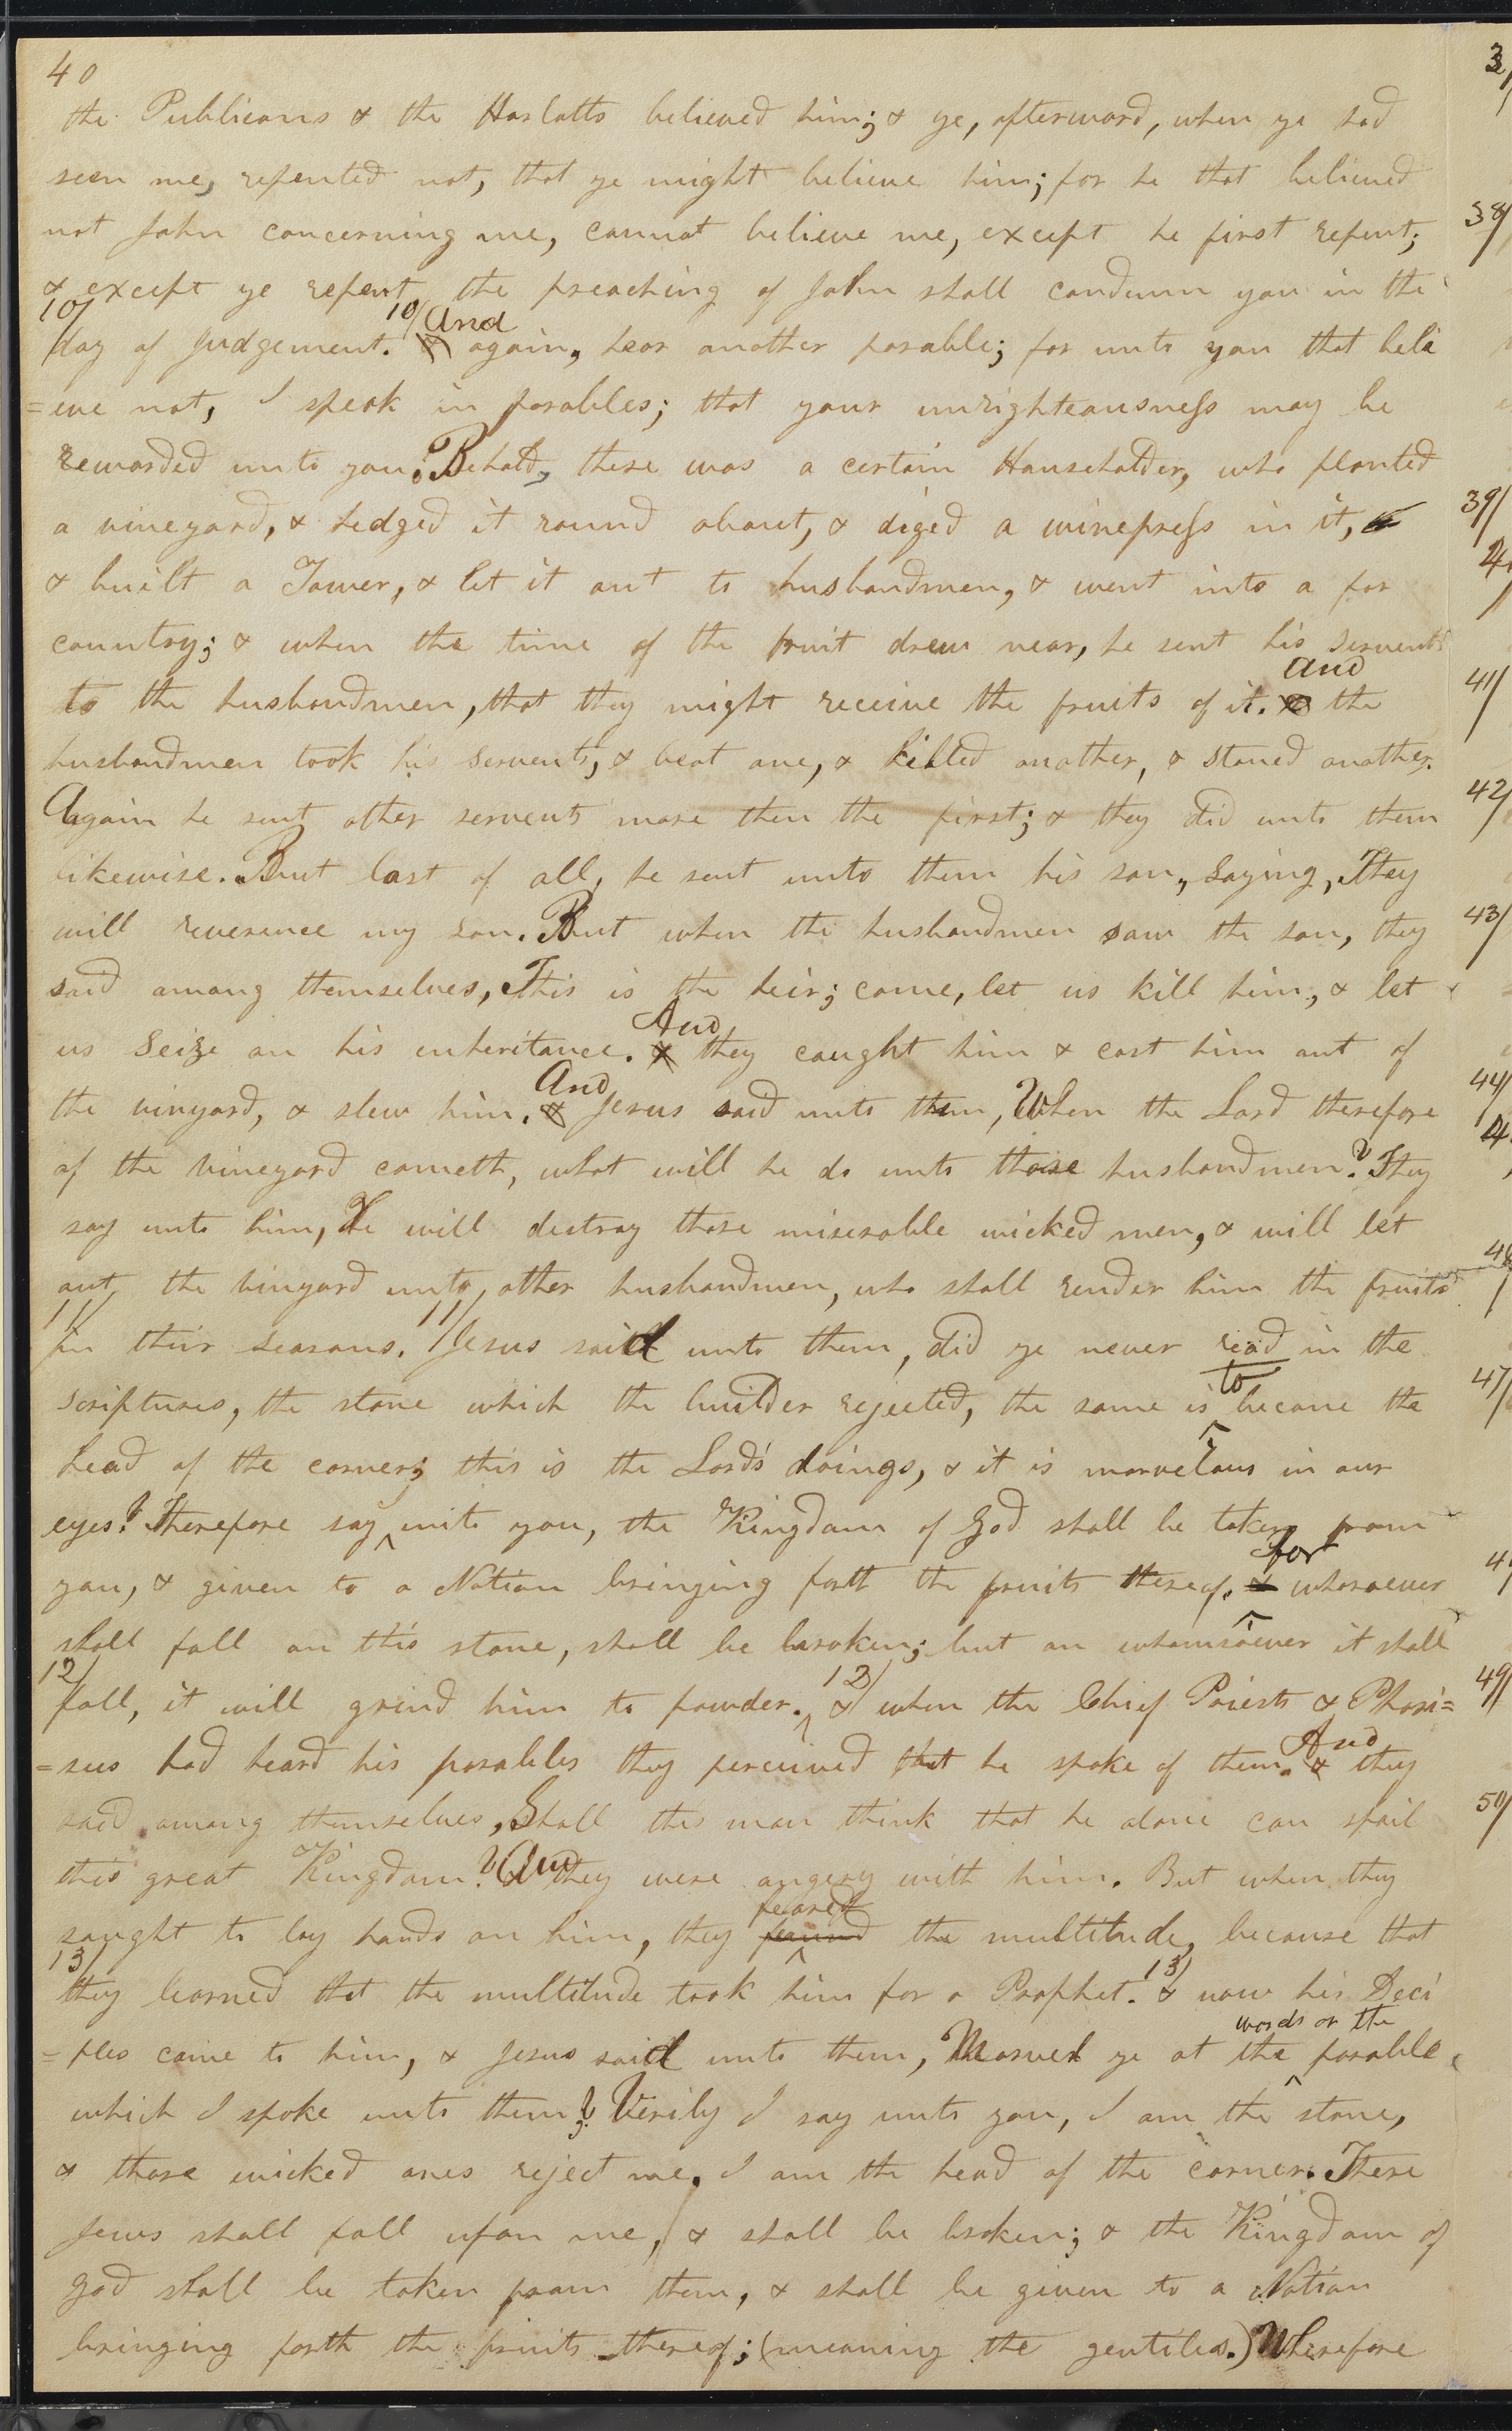 40
the Publicans & the Harlotts believed him; & ye, afterward, when ye had
seen me, repented not, that ye might believe him; for he that believed
not John concerning me, cannot believe me, except he first repent;
& except ye repent, the preaching of John shall condemn you in the
10/ day of Judgement. 10/ & And again, hear another parable; for unto you that beli
=eve not, I speak in parables; that your unrighteousness may be
rewarded unto you. Behold, there was a certain Householder, who planted
a vineyard, & hedged it round about, & diged a winepress in it, &
& built a Tower, & let it out to husbandmen, & went into a far
country; & when the time of the fruit drew near, he sent his servents
to the husbandmen, that they might receive the fruits of it. & and the
husbandmen took his servents, & beat one, & killed another, & stoned another.
Again he sent other servents more then the first; & they did unto them
likewise. But last of all, he sent unto them his son, saying, They
will reverence my son. But when the husbandmen saw the son, they
said among themselves, This is the heir; come, let us kill him, & let
us seize on his enheritance. & And they caught him & cast him out of
the vinyard, & slew him. & And Jesus said unto them, When the Lord therefore
of the vineyard cometh, what will he do unto those husbandmen? They
say unto him, He will destroy those miserable wicked men, & will let
out the vinyard unto other husbandmen, who shall render him the fruits
11/ in their seasons. 11/ Jesus said unto them, did ye never read in the
scriptures, the stone which the builder rejected, the same is to become the
head of the corner; this is the Lord's doings, & it is marvelous in our
eyes? Therefore say unto you, the Kingdom of God shall be taken from
you, & given to a Nation bringing forth the fruits thereof. & for whosoever
shall fall on this stone, shall be broken; but on whomsoever it shall
12/ fall, it will grind him to powder. 12/ & when the Chief Priests & Phari=
=sees had heard his parables they perceived that he spoke of them. & And they
said among themselves, Shall this man think that he alone can spoil
this great Kingdom? And they were angery with him. But when they
sought to lay hands on him, they found feared the multitude, because that
13/ they learned that the multitude took him for a Prophet. 13/ & now his Deci
=ples came to him, & Jesus said unto them, Marvel ye at the words of the parable
which I spoke unto them? Verily I say unto you, I am the stone,
& those wicked ones reject me. I am the head of the corner. These
Jews shall fall upon me, & shall be broken; & the Kingdom of
God shall be taken from them, & shall be given to a Nation
bringing forth the fruits thereof; (meaning the gentiles.) Wherefore
38/
39/
41/
42/
43/
44/
47/
49/
50/